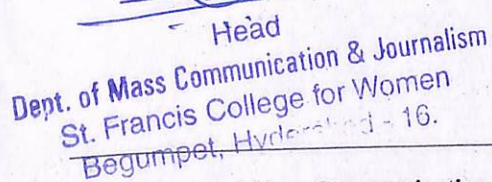 Head
Dept. of Mass Communication & Journalism
St. Francis College for Women
Begumpet, - 16.